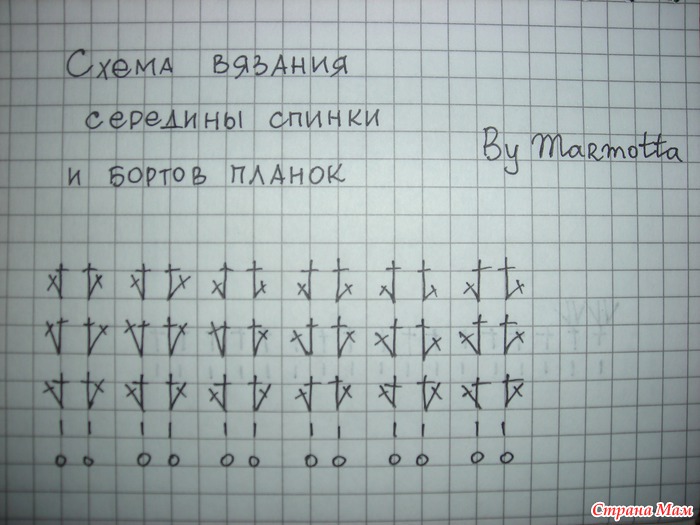 Схема вязания
середины спинки
и бортов планок
By Marmotta
Страна Мам